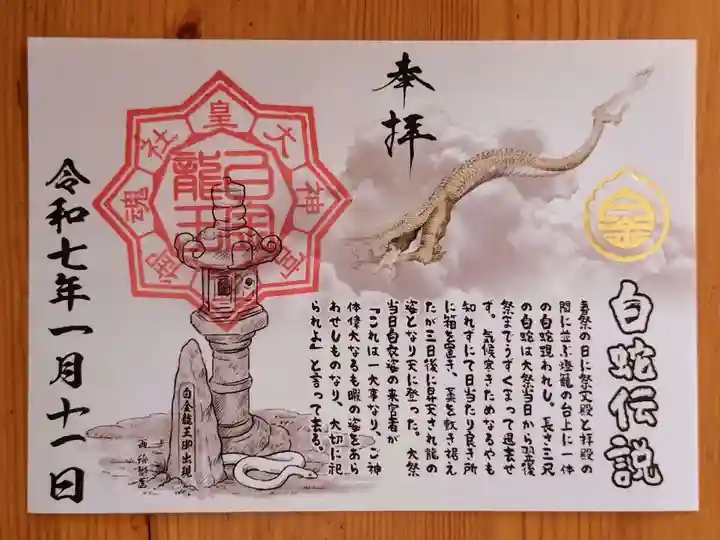 奉拝
白蛇伝説
春祭の日に祭文殿と拝殿の
間に並ぶ燈籠の台上に一体
の白蛇現われし。長さ三尺
の白蛇は大祭当日から翌後
祭までうずくまって退去せ
ず。気候寒きためなるやも
知れずにて日当たり良き所
に箱を置き、藁を敷き据え
たが三日後に昇天され龍の
姿となり天に登った。大祭
当日白衣姿の来宮者が
「これは一大事なり、ご神
体偉大なるも暇の姿をあら
わせしものなり、大切に祀
られよ」と言って去る。
白金龍王御出現
大皇社魂
神宮
龍王
令和七年一月十一日